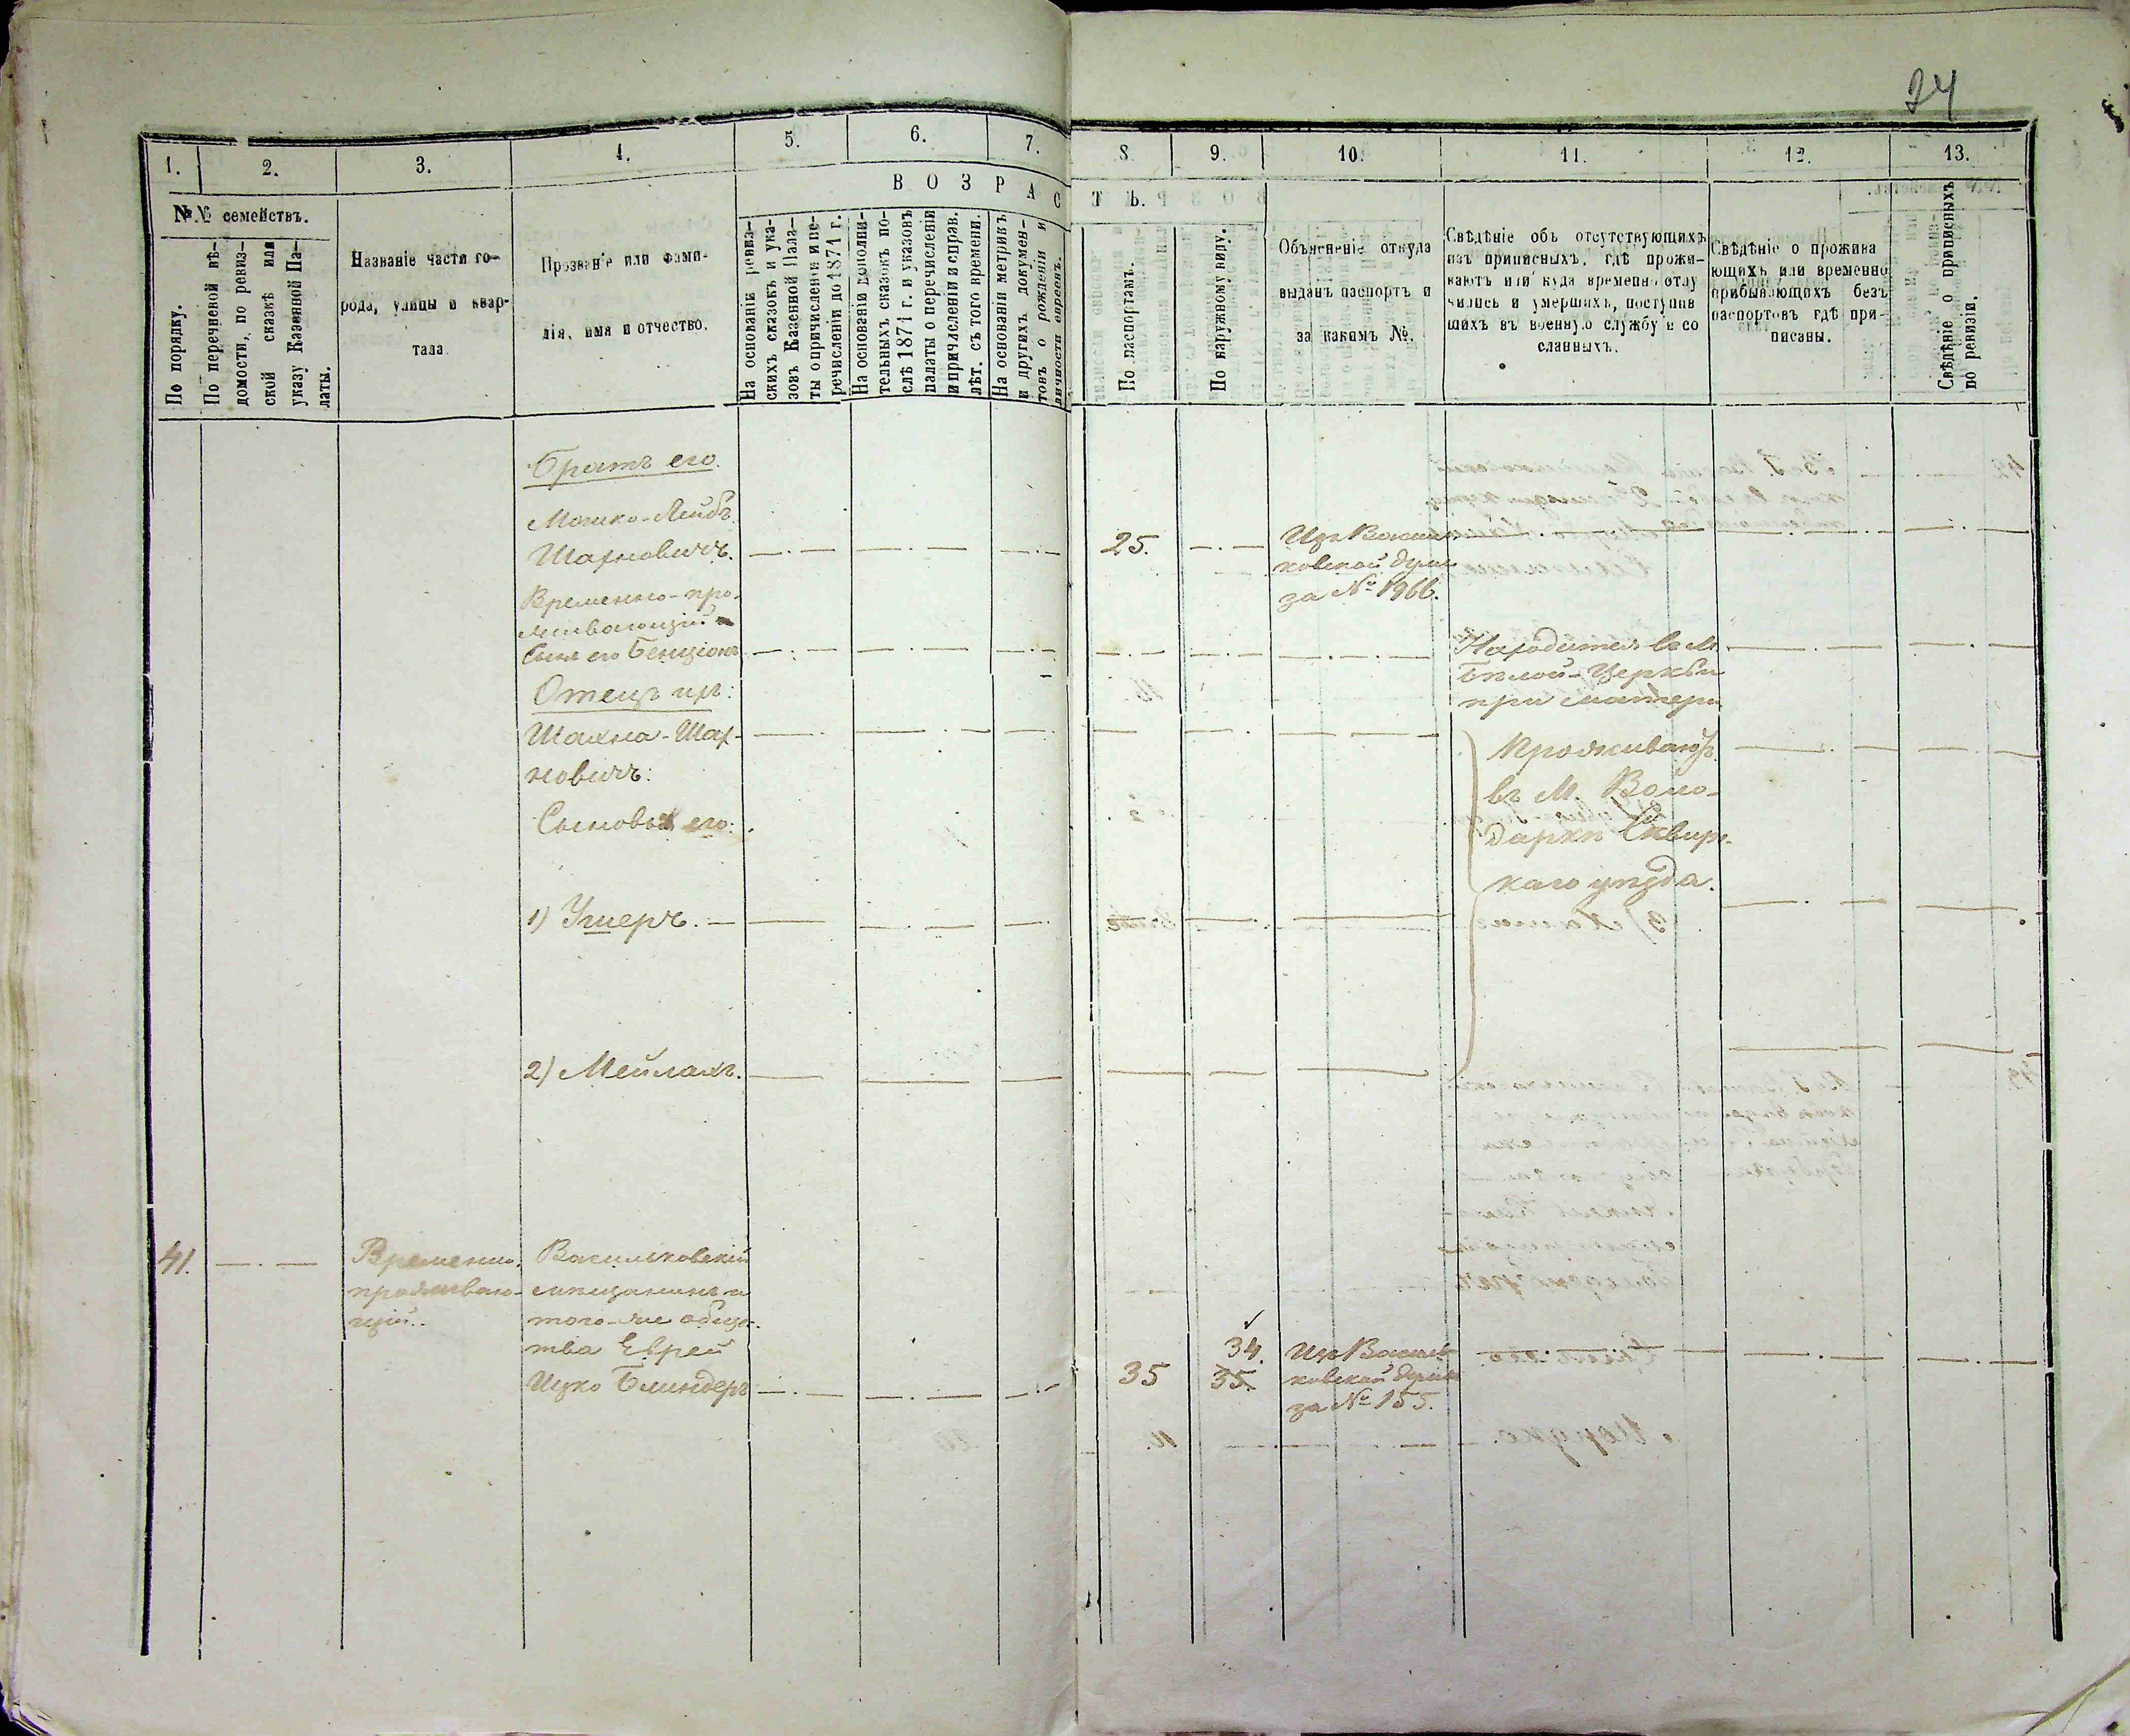 24
1.
2.
3.
4.
5.
6.
7.
8
9.
10.
11.
12.
13.
В О З Р А С
Т Ъ.
№№ семействъ.
По порядку.
По перечневой вѣ-
домости, по ревиз-
ской сказкѣ или
указу Казенной Па-
латы.
Названіе части го-
рода, улицы и квар-
тала
Прозваніе или фами-
лія, имя и отчество.
На основаніи ревиз-
скихъ сказокъ и ука-
зовъ Казенной Пала-
ты о причислени и пе-
речисленіи до 1871 г.
На основаніи дополни-
тельныхъ сказокъ по-
слѣ 1871 г. и указовъ
палаты о перечислени
и причлсленіи и справ.
лѣт. съ того времени.
На основаніи метрикъ
и другихъ докумен-
товъ о рожденіи и
личности евреевъ.
По паспортамъ.
По наружному виду.
Объясненіе откуда
выданъ паспортъ и
за какимъ №.
Свѣдѣніе объ отсутствующихъ
изъ приписныхъ, гдѣ прожи-
ваютъ или куда временно отлу
чились и умершихъ, поступив
шихъ въ военную службу и со
сланныхъ.
Свѣдѣніе о прожива
ющихъ или временно
прибывающихъ безъ
паспортовъ гдѣ при-
писаны.
Свѣдѣніе о приписныхъ
по ревизіи.
Братъ его
Мошко-Лейбъ
Шахновичъ. 25. Изъ Василь
ковской думы
за № 1966.
Временно-про-
живающій
Сынъ его Бенціонъ Находится въ М.
Бѣлой-Церкви
при матери
Отецъ их:
Шахна-Шах-
новичъ:
Сыновья его:
Проживаютъ
въ М. Воло-
даркѣ Сквир-
каго уѣзда.
1) Ушеръ.
2) Мейлахъ.
41. Временно
проживаю-
щій.
Васильковскій
мѣщанинъ и
того-же общес-
тва Еврей
Ицко Блиндеръ 35
34.
35.
Изъ Василь
ковской думы
за № 155.